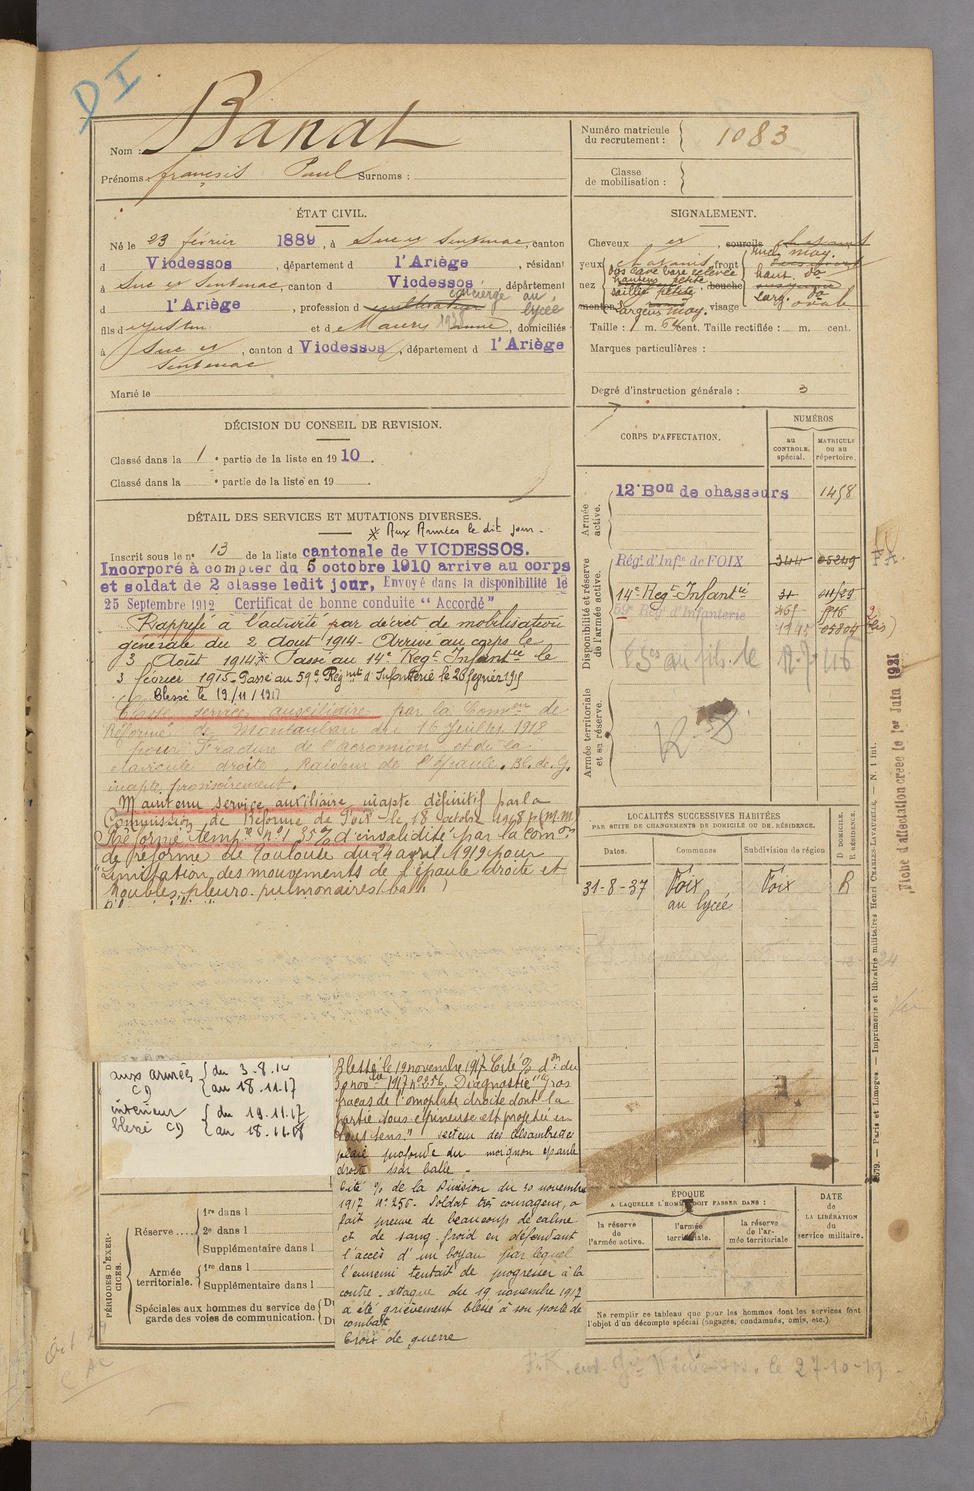 DI
Nom : Banat
Prénoms : françois Paul Surnoms :
Numéro matricule du recrutement : 1083
Classe de mobilisation :
ÉTAT CIVIL.
Né le 23 février 1889, à Suc et Sentenac, canton
d Vicdessos, département d l'Ariège, résidant
à Suc et Sentenac, canton d Vicdessos, département
d l'Ariège, profession d cultivateur concierge au lycée
1938
fils d Justin et d Maury Anne, domiciliés
à Suc et Sentenac, canton d Vicdessos, département d l'Ariège
Marié le
SIGNALEMENT.
Cheveux , sourcils
yeux chatains front
nez bouche
menton visage ovale
Taille : 1 m. 64 cent. Taille rectifiée : m. cent.
Marques particulières :
Degré d'instruction générale : 3
DÉCISION DU CONSEIL DE REVISION.
Classé dans la 1 e partie de la liste en 1910.
Classé dans la e partie de la liste en 19 .
DÉTAIL DES SERVICES ET MUTATIONS DIVERSES.
* Aux Armées le dit jour.
Inscrit sous le n° 13 de la liste cantonale de VICDESSOS.
Incorporé à compter du 5 octobre 1910 arrive au corps
et soldat de 2 classe ledit jour, Envoyé dans la disponibilité le
25 Septembre 1912 Certificat de bonne conduite "Accordé"
Rappelé à l'activité par décret de mobilisation
générale du 2 Aout 1914. Arrivé au corps le
3 Août 1914 * Passé au 14e Regt Infantrie le
3 février 1915. Passé au 59e Régmt d'Infanterie le 26 février 1915
Blessé le 19/11/1917
Classé service auxiliaire par la Comon de
Réforme de Montauban du 16 Juillet 1918
pour Fracture de l'acromion et de la
clavicule droite. Raideur de l'épaule. Bl. de G.
inapte provisoirement.
Maintenu service auxiliaire inapte définitif par la
Commission de Réforme de Foix le 18 octobre 1918 p. (m.m.)
Réformé tempre n° 1 35% d'invalidité par la comon
de réforme de Toulouse du 24 avril 1919 pour
"Limitation des mouvements de l'épaule droite et
troubles pleuro-pulmonaires (balle)
aux armées { du 3.8.14
CD { au 18.11.17
intérieur { du 19.11.17
blessé CD { au 18.11.18
Blessé le 19 novembre 1917. Cité % don du
30 nov. 1917 n° 256. Diagnostic "Gros
fracas de l'omoplate droite dont la
partie sous epineuse est projetée en
tous sens." secteur des Chambrettes
plaie profonde du moignon épaule
droite par balle.
Cité % de la Division du 30 novembre
1917 n° 256. Soldat très courageux, a
fait preuve de beaucoup de calme
et de sang-froid en défendant
l'accès d'un boyau par lequel
l'ennemi tentait de progresser à la
contre-attaque du 19 novembre 1917
a été grièvement blessé à son poste de
combat
Croix de guerre
CORPS D'AFFECTATION.
NUMÉROS
au CONTROLE spécial.
MATRICULE ou au répertoire.
Armée active.
12e Bon de chasseurs 1458
Disponibilité et réserve de l'armée active.
Régt d'Infie de FOIX 344 05249
14e Regt Infantie
59e Reg d'Infanterie
Armée territoriale et sa réserve.
LOCALITÉS SUCCESSIVES HABITÉES
PAR SUITE DE CHANGEMENTS DE DOMICILE OU DE RÉSIDENCE.
Dates. Communes Subdivision de région D DOMICILE. R RÉSIDENCE.
31-8-37 Foix Foix R
au lycée
PÉRIODES D'EXERCICES.
Réserve .... 1re dans l
2e dans l
Supplémentaire dans l
Armée territoriale. 1re dans l
Supplémentaire dans l
Spéciales aux hommes du service de garde des voies de communication.
ÉPOQUE
A LAQUELLE L'HOMME DOIT PASSER DANS :
la réserve de l'armée active.
l'armée territoriale.
la réserve de l'armée territoriale
DATE de LA LIBÉRATION du service militaire.
Ne remplir ce tableau que pour les hommes dont les services font l'objet d'un décompte spécial (engagés, condamnés, omis, etc.)
Fiche d'affectation créée le 1er Juin 1921
Paris et Limoges. — Imprimerie et librairie militaires Henri CHARLES-LAVAUZELLE. — N. 1 int.
le 27-10-19